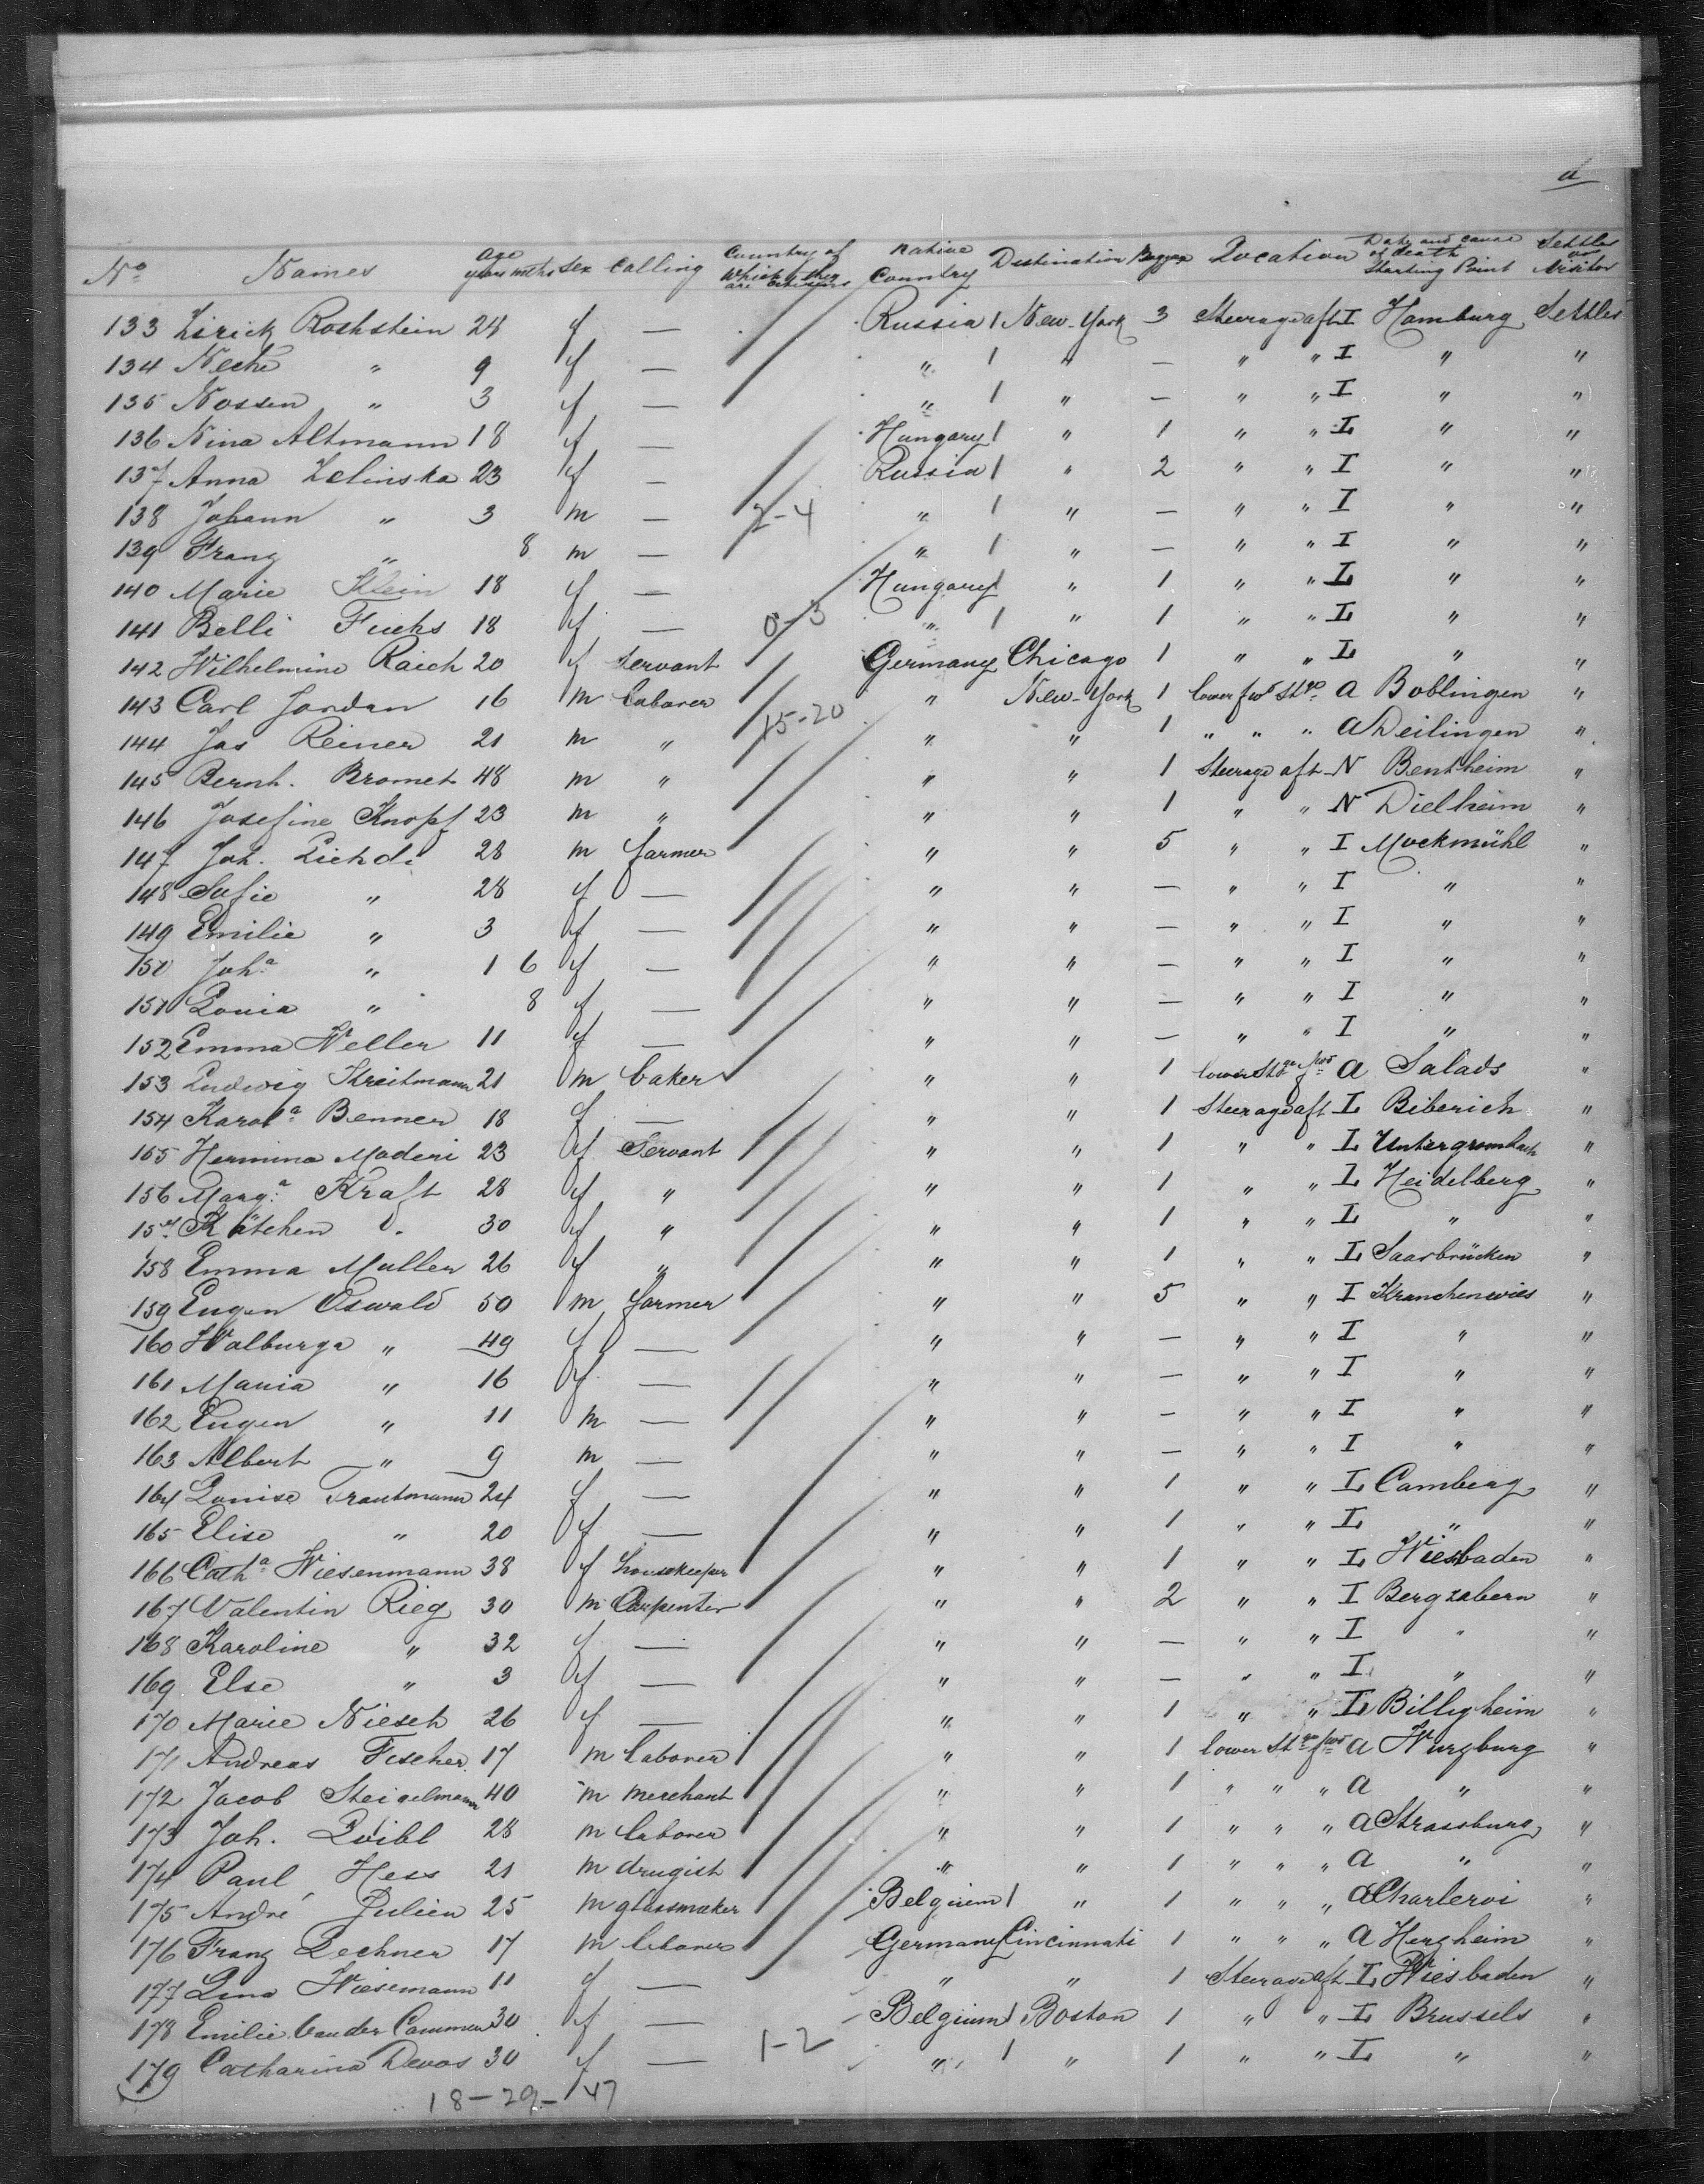 a
No Names age years mths sex Calling Country of which they are citizens Native Country Destination Location Date and cause of death Starting Point Settler or Visitor
133 Zirick Rothstein 24 f — Russia 1 New-York 3 Steerage aft I Hamburg Settler
134 Neche " 9 f — " 1 " — " " I " "
135 Nossen " 3 f — " 1 " — " " I " "
136 Nina Altmann 18 f — Hungary 1 " 1 " " L " "
137 Anna Zelinska 23 f — Russia 1 " 2 " " I " "
138 Johann " 3 m — 2-4 " 1 " — " " I " "
139 Franz " 8 m — " 1 " — " " I " "
140 Marie Klein 18 f — Hungary 1 " 1 " " L " "
141 Belli Fuchs 18 f — 0-3 " 1 " 1 " " L " "
142 Wilhelmine Raich 20 f Servant Germany Chicago 1 " " L " "
143 Carl Jordan 16 m laborer " New-York 1 lower fwd Stge a Boblingen "
144 Jas Reiner 21 m " 15-20 " " 1 " " " a Deilingen "
145 Bernh. Bromet 48 m " " " 1 Steerage aft N Bentheim "
146 Josefine Knopf 23 m " " " 1 " " N Dielheim "
147 Joh. 28 m farmer " " 5 " " I Mockmühl "
148 Sofie " 28 f — " " — " " I " "
149 Emilie " 3 f — " " — " " I " "
150 Joha " 1 6 f — " " — " " I " "
151 " 8 f — " " — " " I " "
152 Emma Weller 11 f — " " — " " I " "
153 Ludwig Streitmann 21 m baker " " 1 lower Stge fwd a Salads "
154 Karola Benner 18 f — " " 1 Steerage aft L Biberich "
155 Hermina Maderi 23 f Servant " " 1 " " L Untergrombach "
156 Marga Kraft 28 f " " " 1 " " L Heidelberg "
157 Kätchen " 30 f " " " 1 " " L " "
158 Emma Muller 26 f " " " 1 " " L Saarbrücken "
159 Eugen Oswald 50 m farmer " " 5 " " I Kranchenwies "
160 Walburga " 49 f — " " — " " I " "
161 Maria " 16 f — " " — " " I " "
162 Eugen " 11 m — " " — " " I " "
163 Albert " 9 m — " " — " " I " "
164 Louise Trautmann 24 f — " " 1 " " L Camberg "
165 Elise " 20 f — " " 1 " " L " "
166 Catha Wiesenmann 38 f housekeeper " " 1 " " L Wiesbaden "
167 Valentin Rieg 30 m Carpenter " " 2 " " I Bergzabern "
168 Karoline " 32 f — " " — " " I " "
169 Else " 3 f — " " — " " I " "
170 Marie Niesch 26 f — " " 1 " " L Billigheim "
171 Andreas Fischer 17 m laborer " " 1 lower Stge fwd a Wurzburg "
172 Jacob Steigelmann 40 m merchant " " 1 " " " a " "
173 Joh. Loibl 28 m laborer " " 1 " " " a Strassburg "
174 Paul Hess 21 m drugist " " 1 " " " a " "
175 André Julien 25 m glassmaker Belgium 1 " 1 " " " a Charleroi "
176 Franz Lechner 17 m laborer Germany Cincinnati 1 " " " a Hergheim "
177 Lina Wiesemann 11 f — " " 1 Steerage aft L Wiesbaden "
178 Emilie Van der Cammen 30 f — Belgium 1 Boston 1 " " L Brussels "
179 Catharina Devos 30 f — 1-2 " 1 " 1 " " L " "
18-29- 47